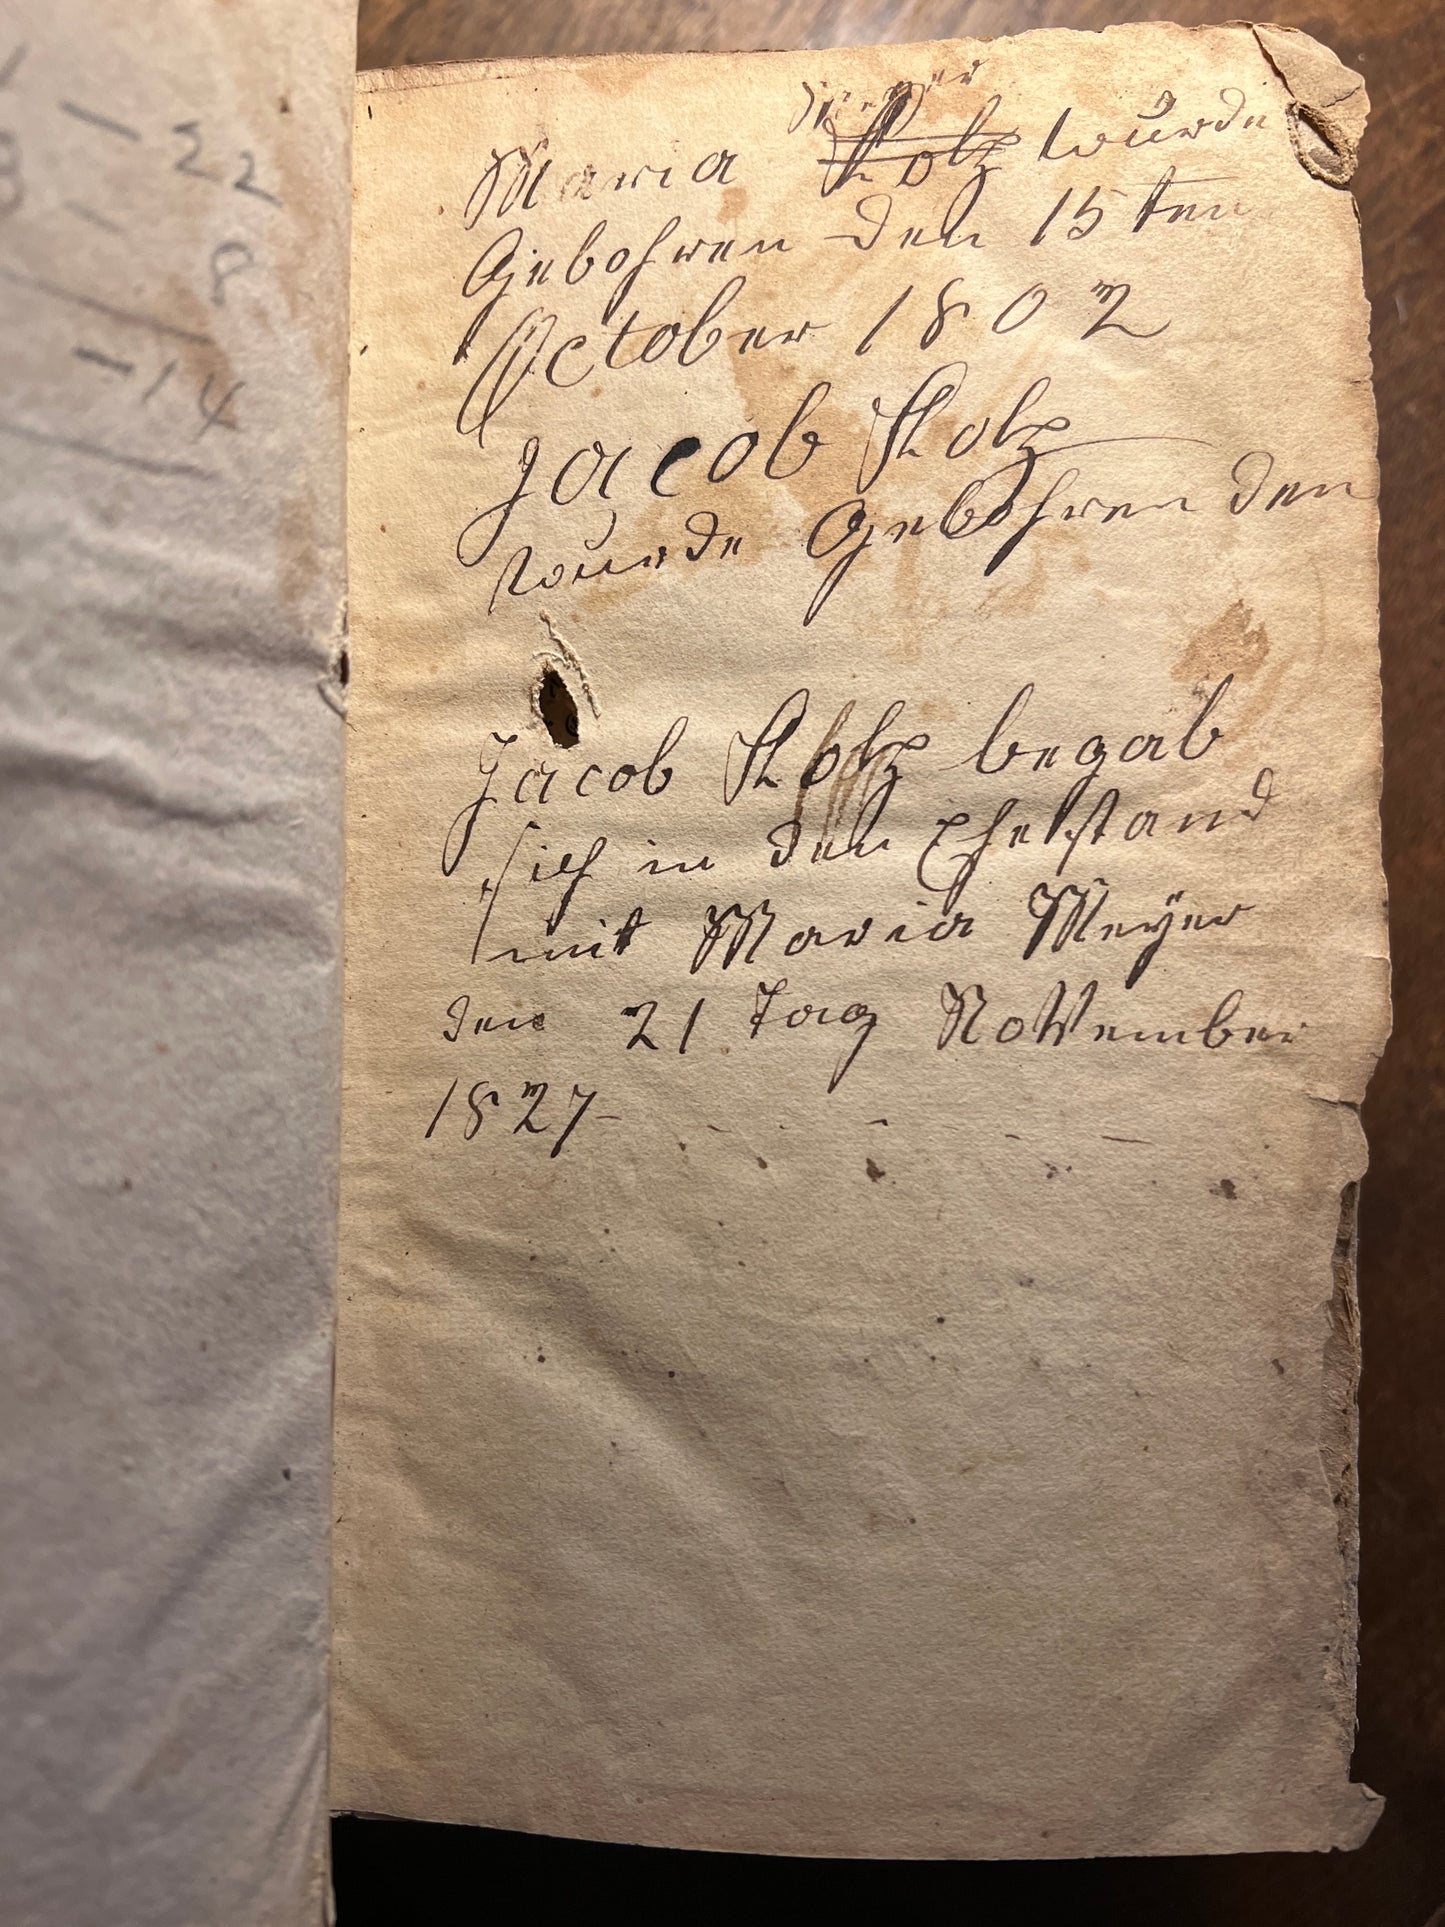 - 22
- 8
- 14
Meyer
Maria Stolz wurde
Gebohren den 15 ten
October 1802
Jacob Stolz
wurde Gebohren den
Jacob Stolz begab
sich in den Ehestand
mit Maria Meÿer
den 21 Tag November
1827 - - - - -